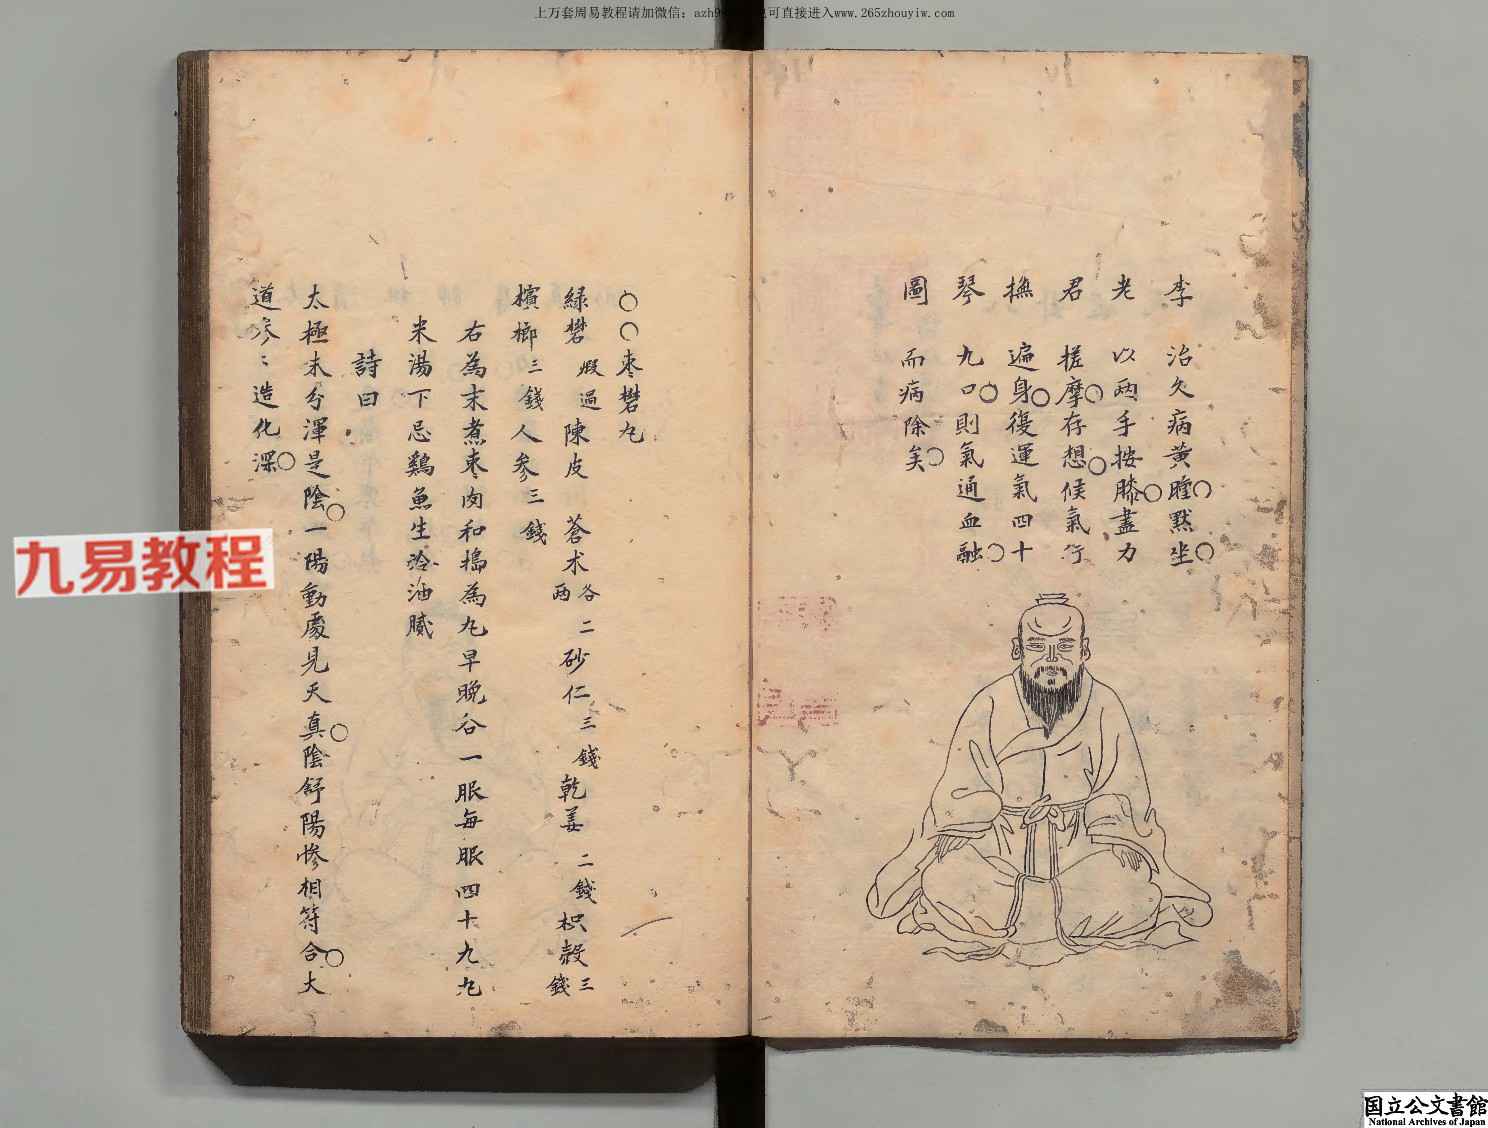 上万套周易教程请加微信：azh9 可直接进入www.265zhouyiw.com
李老君撫琴圖
治久病黄瞳默坐
以兩手按膝盡力
搓摩存想候氣行
遍身復運氣四十
九口則氣通血融
而病除矣
○○枣礬丸
緑礬煆過陳皮蒼朮各二两砂仁三錢乾姜二錢枳殼三錢
檳榔三錢人參三錢
右為末煮枣肉和搗為丸早晚各一服每服四十九丸
米湯下忌鷄魚生冷油膩
詩曰
太極未分渾是陰一陽動處見天真陰舒陽慘相符合大
道參〻造化深
九易教程
国立公文書館
National Archives of Japan